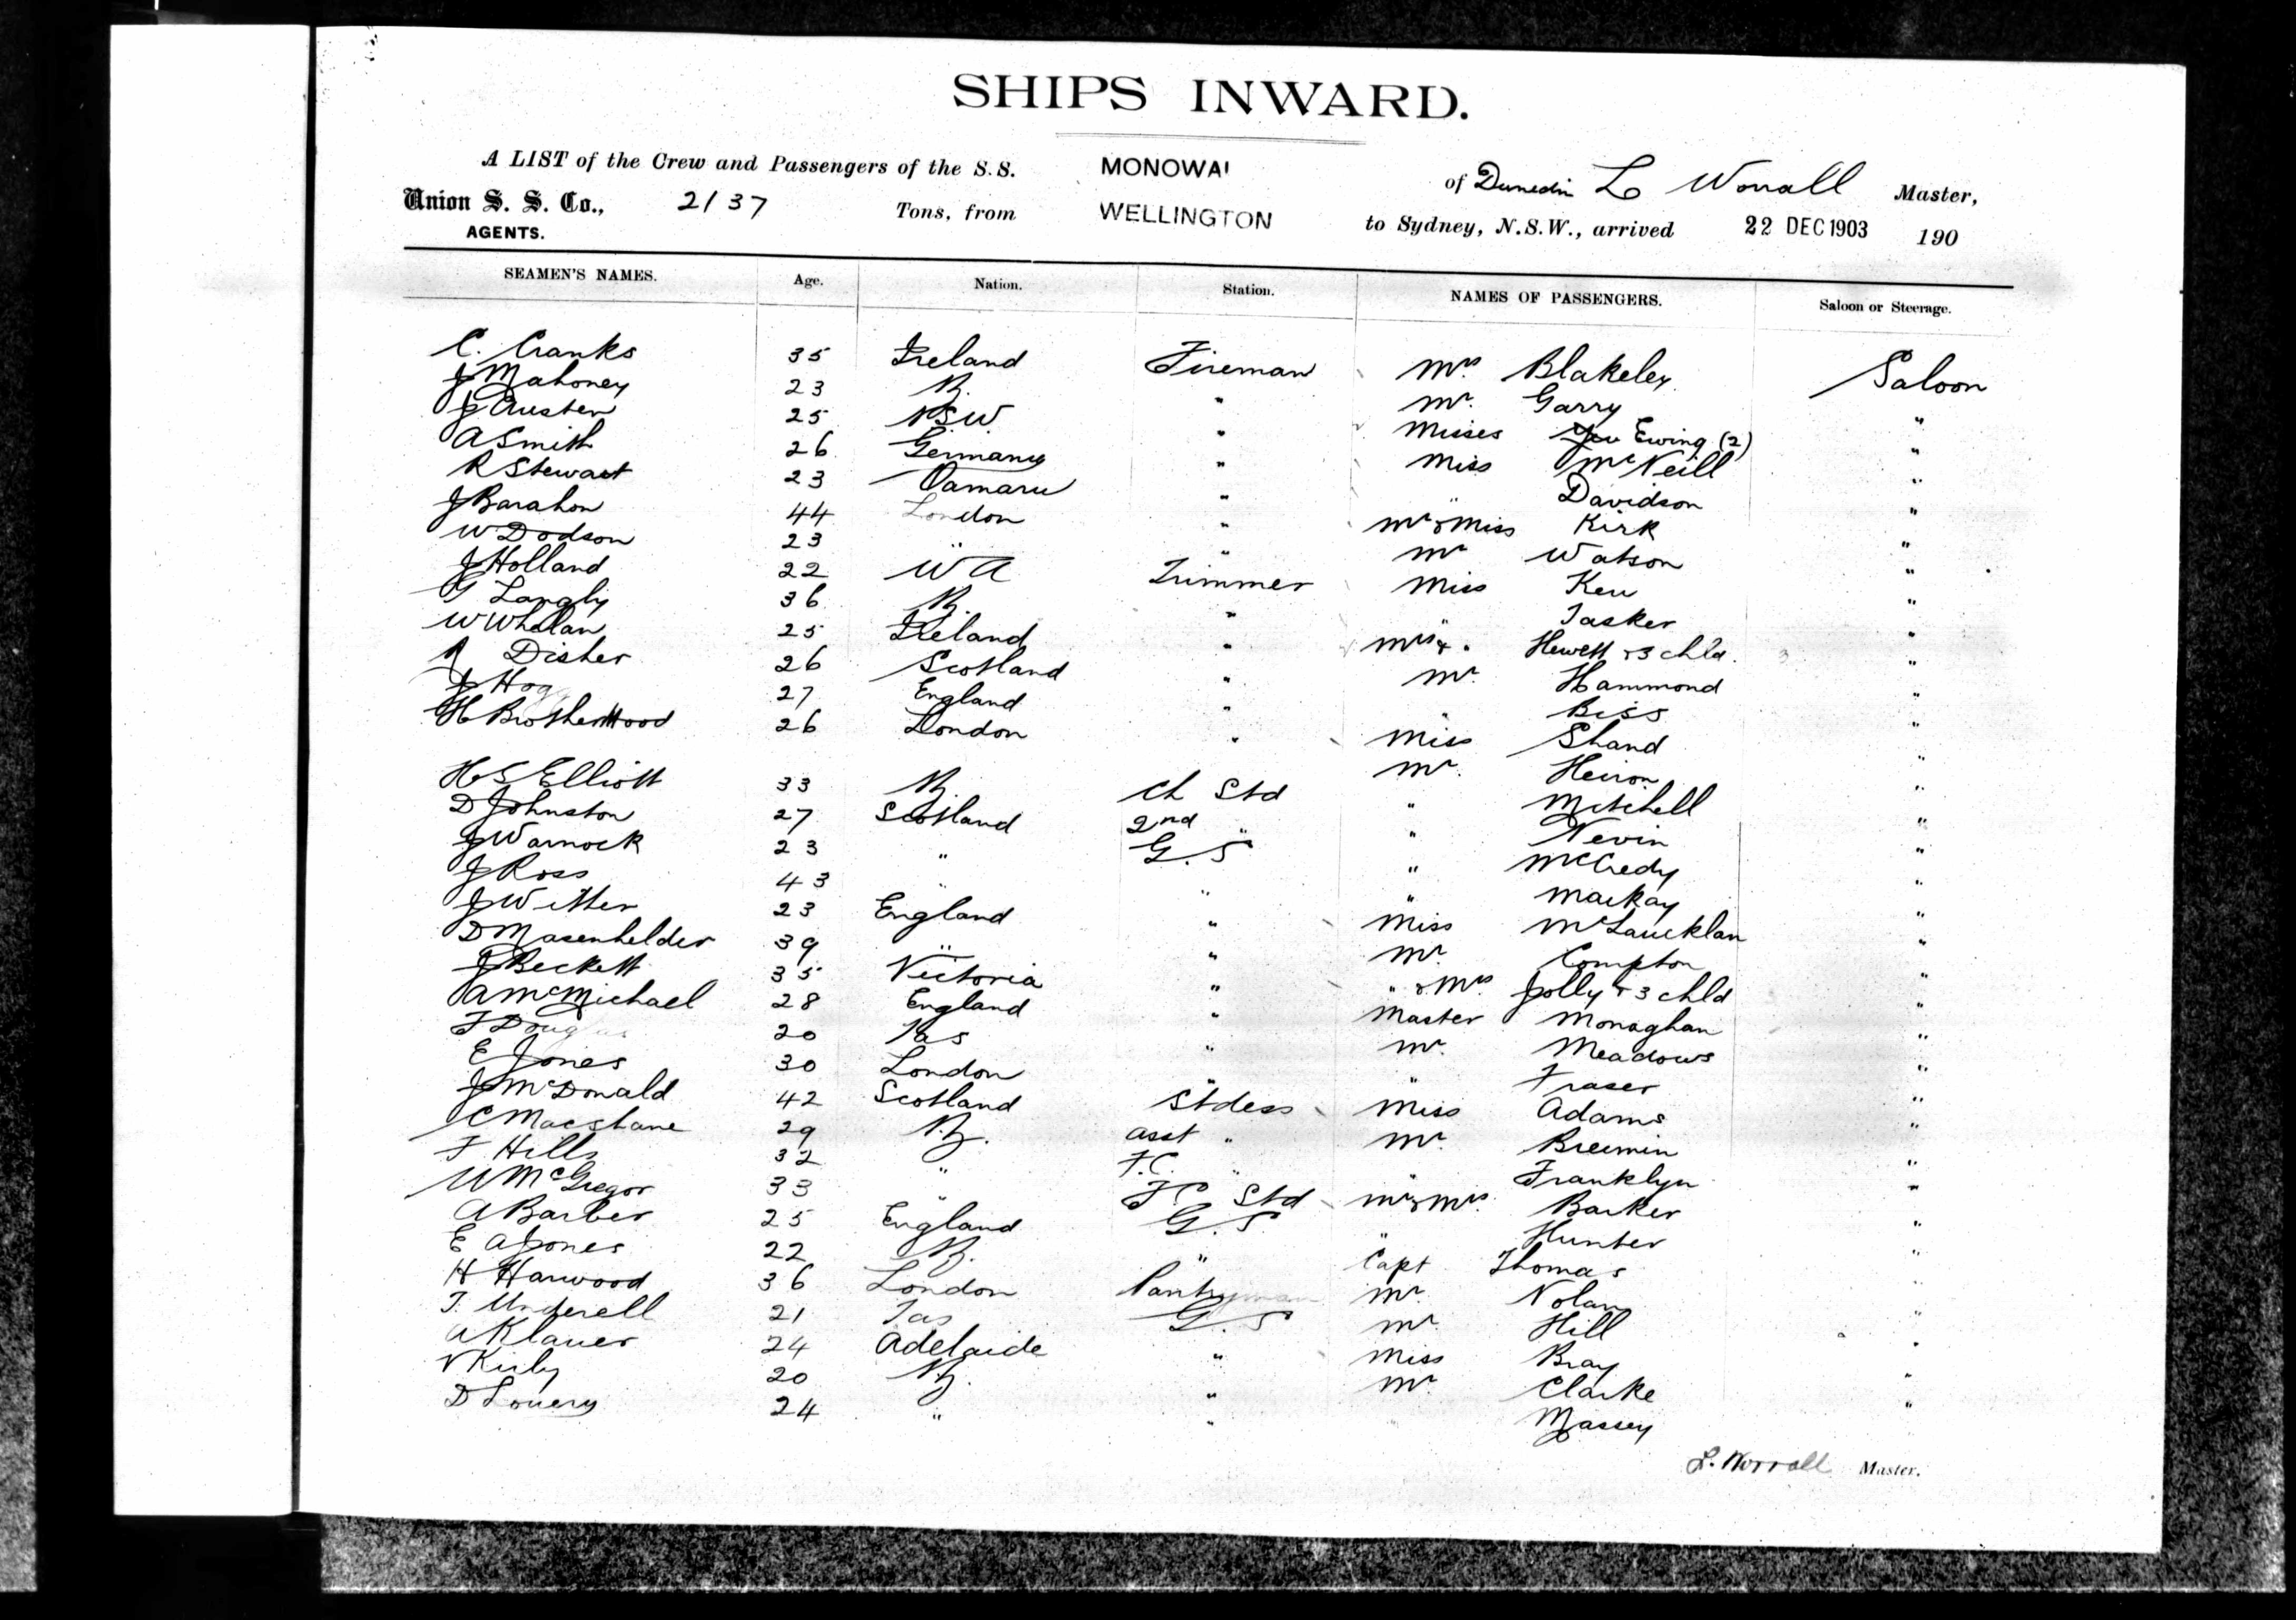 SHIPS INWARD.
A LIST of the Crew and Passengers of the S.S. MONOWAI of Dunedin L Worrall Master,
Union S. S. Co., 2137 Tons, from WELLINGTON to Sydney, N.S.W., arrived 22 DEC 1903 190
AGENTS.
SEAMEN'S NAMES. Age. Nation. Station. NAMES OF PASSENGERS. Saloon or Steerage.
C. Cranks 35 Ireland Fireman Mrs Blakeley Saloon
J Mahoney 23 " Mr. Garry "
J Austen 25 NSW " Misses Ewing (2) "
A Smith 26 Germany " Miss McNeill "
R Stewart 23 Oamaru " " Davidson "
J Barahon 44 London " Mr & Miss Kirk "
W Dodson 23 " " Mr Watson "
J Holland 22 W A Trimmer Miss "
G Langly 36 " " Tasker "
W Whelan 25 Ireland " Hewett & 3 chld. "
Disher 26 Scotland " Mr. Hammond "
J Hogg 27 England " " Biss "
H Brotherhood 26 London " Miss Shand "
H S Elliott 33 Ch Std Mr. "
D Johnston 27 Scotland 2nd " " Mitchell "
J Warnock 23 " G. S " Nevin "
J Ross 43 " " " McCredy "
J Witter 23 England " " Mackay "
D Masenhelder 39 " " Miss McLaucklan "
J Beckett 35 Victoria " Mr. Compton "
A McMichael 28 England " " & Mrs Jolly & 3 chld "
F Douglas 20 Tas " Master Monaghan "
E Jones 30 London " Mr. Meadows "
J McDonald 42 Scotland Stdess " Fraser "
C Macshane 29 asst " Miss Adams "
F Hills 32 " F.C. " Mr. "
W McGregor 33 " F C Std " Franklyn "
A Barber 25 England G. S Mr & Mrs. Barker "
E A Jones 22 " " Hunter "
H Harwood 36 London Pantryman Capt Thomas "
T. Underell 21 Tas G. S Mr. Nolan "
A Klauer 24 Adelaide " Mr Hill "
20 " Miss Bray "
D Lowery 24 " " Mr. Clarke "
Massey
L. Worrall Master.